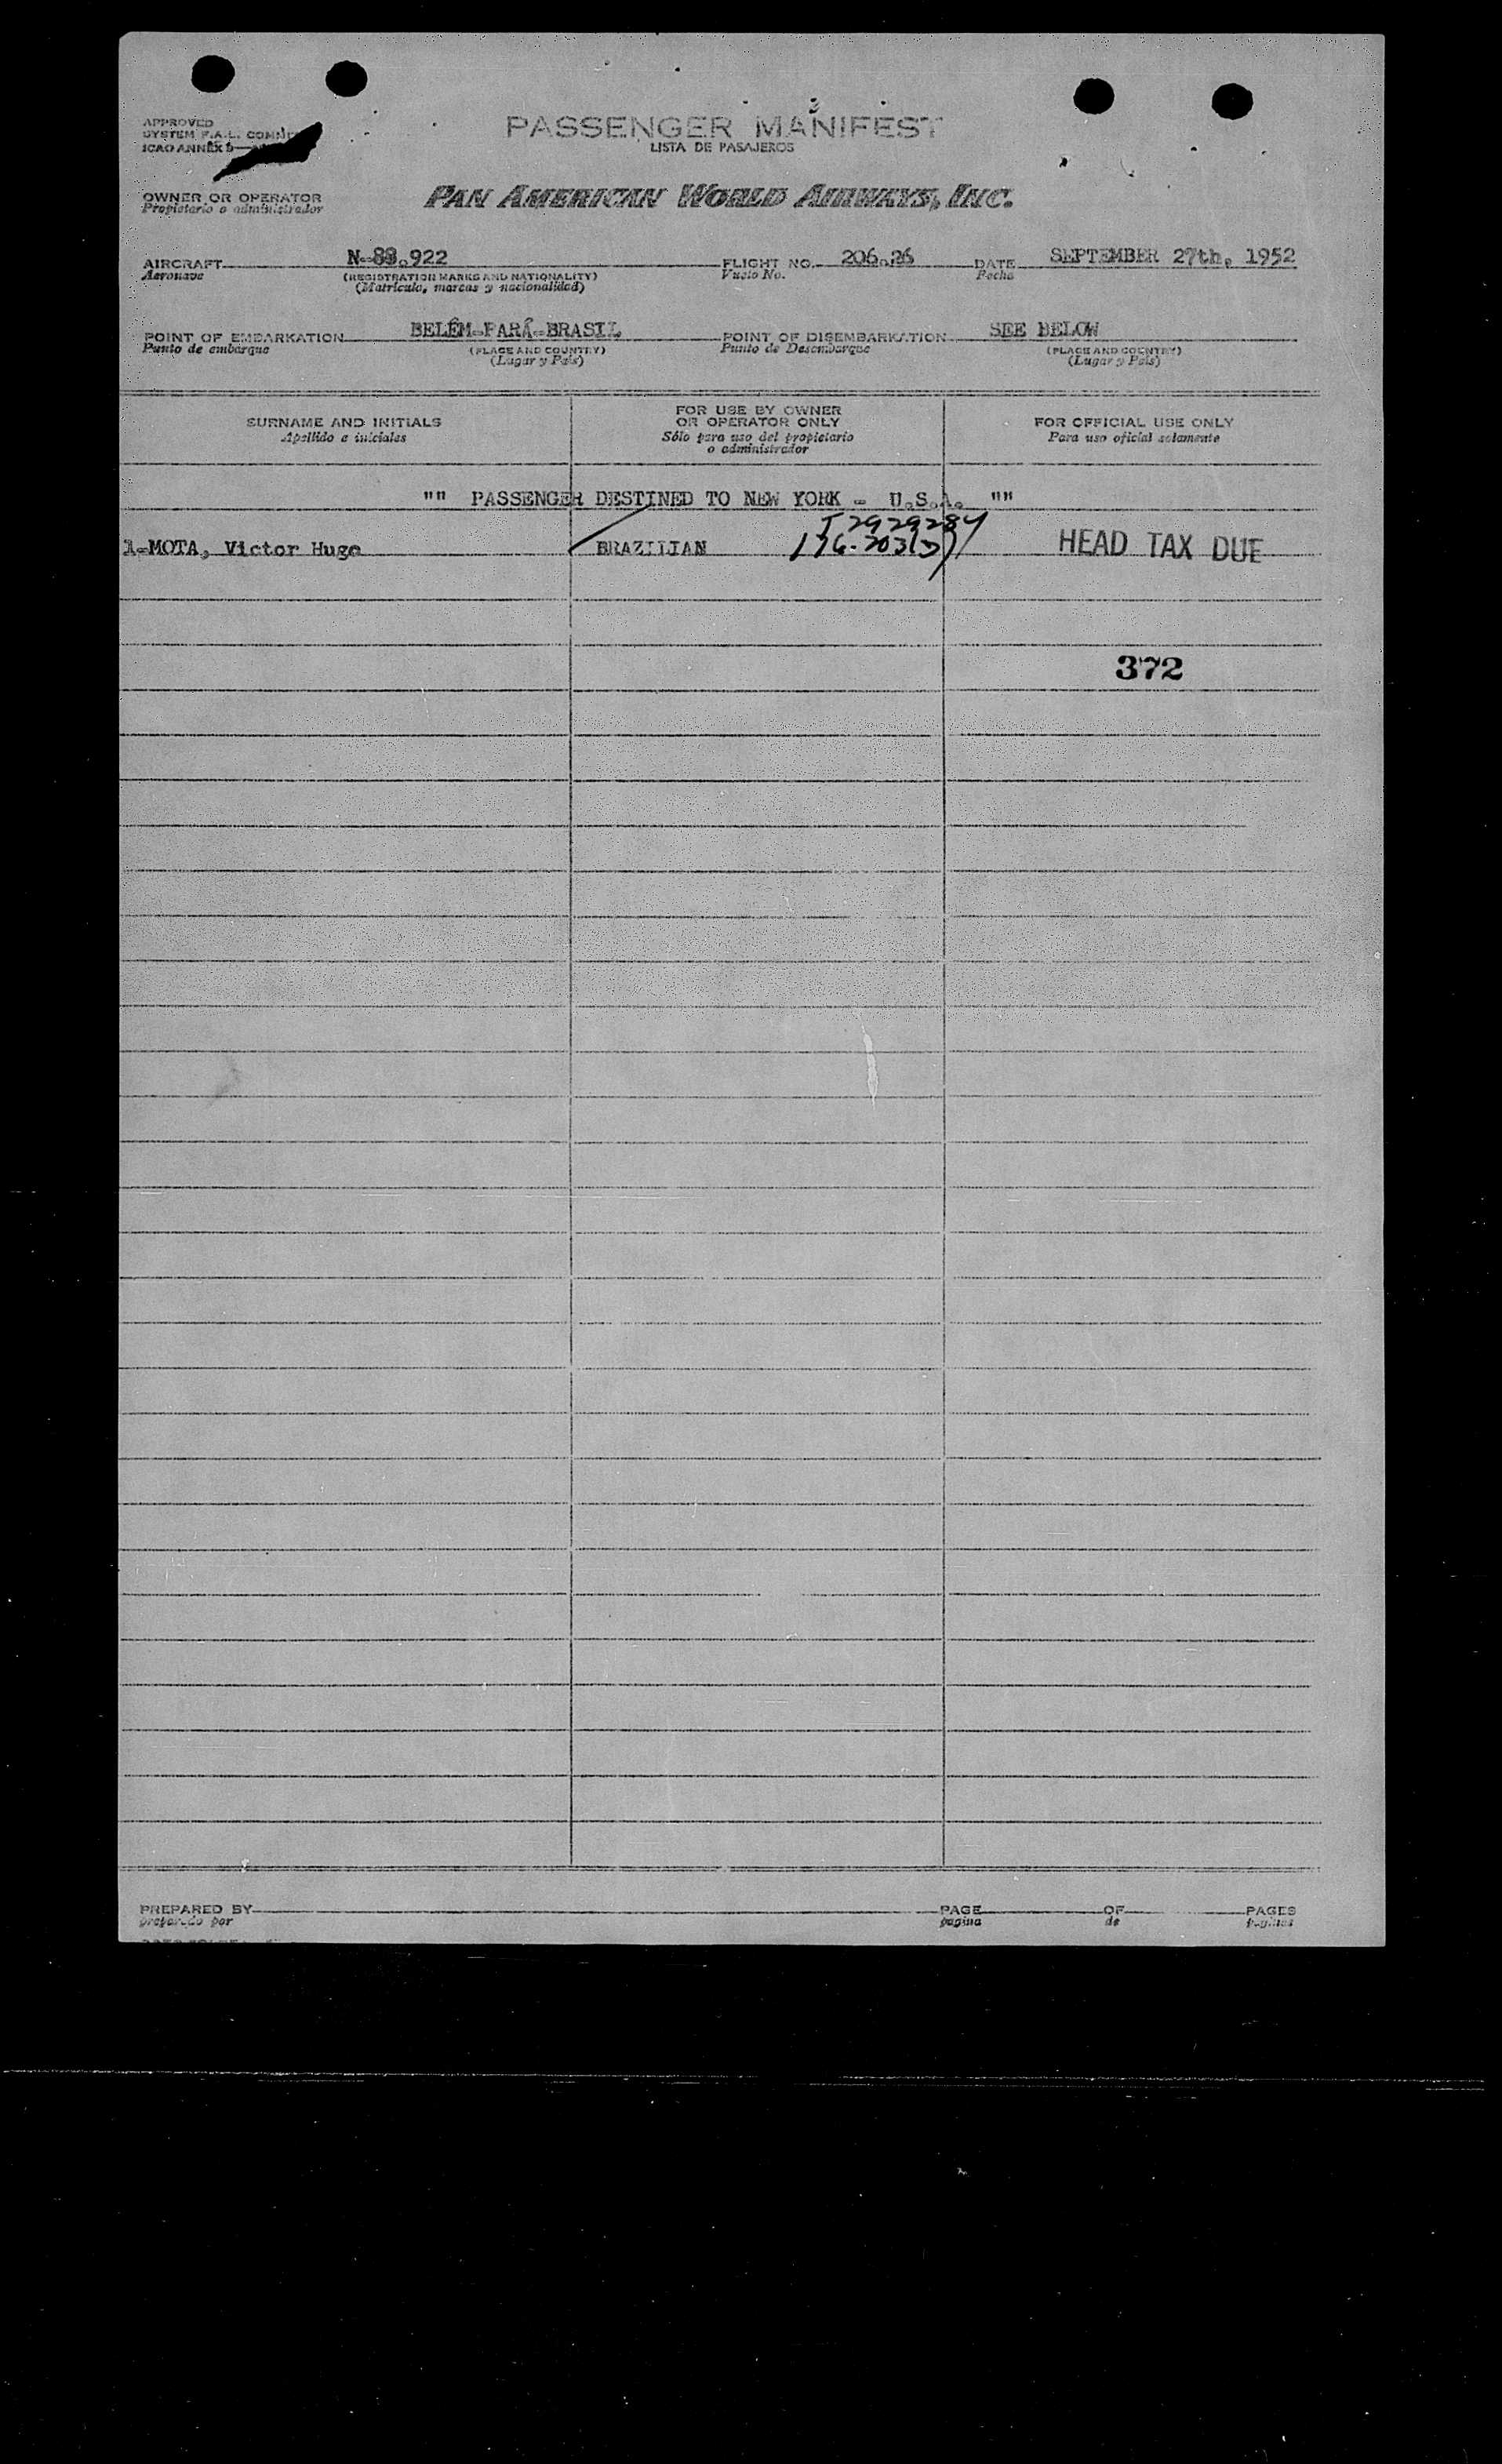 APPROVED
SYSTEM F.A.L. COMMIT
ICAO ANNEX 9—
PASSENGER MANIFEST
LISTA DE PASAJEROS
OWNER OR OPERATOR
Propietario o administrador
PAN AMERICAN WORLD AIRWAYS, INC.
AIRCRAFT N-88.922 FLIGHT NO. 206.26 DATE SEPTEMBER 27th, 1952
Aeronave (REGISTRATION MARKS AND NATIONALITY) Vuelo No. Fecha
(Matrícula, marcas y nacionalidad)
POINT OF EMBARKATION BELÉM-PARÁ-BRASIL POINT OF DISEMBARKATION SEE BELOW
Punto de embarque (PLACE AND COUNTRY) Punto de Desembarque (PLACE AND COUNTRY)
(Lugar y País) (Lugar y País)
SURNAME AND INITIALS
Apellido e iniciales
FOR USE BY OWNER
OR OPERATOR ONLY
Sólo para uso del propietario
o administrador
FOR OFFICIAL USE ONLY
Para uso oficial solamente
"" PASSENGER DESTINED TO NEW YORK - U.S.A. ""
T2929284
1-MOTA, Victor Hugo BRAZILIAN HEAD TAX DUE
372
PREPARED BY PAGE OF PAGES
preparado por pagina de paginas